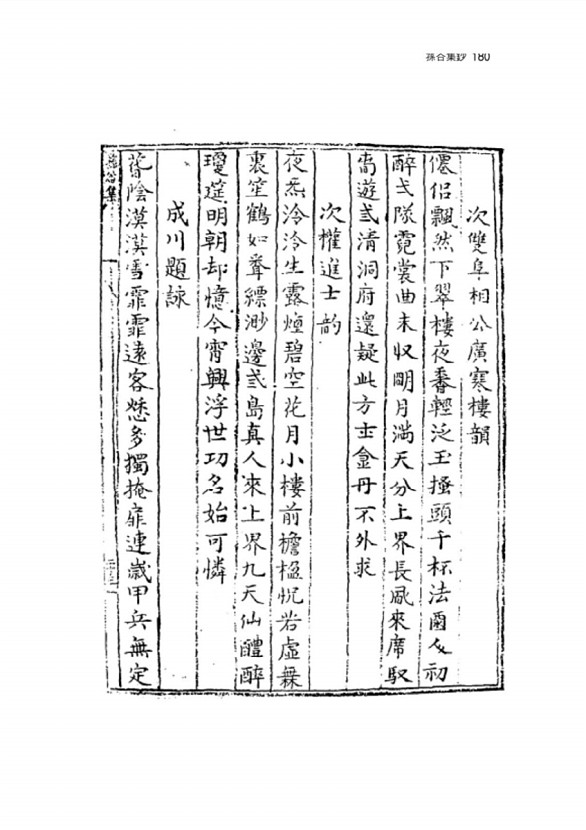 蓀谷集鈔 180
次雙阜相公廣寒樓韻
僊侣飄然下翠樓夜番輕泛玉搔頭千杯法醞人初
醉弌隊霓裳曲未収明月滿天分上界長風來席馭
喬遊弎清洞府還疑此方士金丹不外求
次權進士韵
夜炁泠泠生露煙碧空花月小樓前檐楹怳若虛無
裏笙鶴如聾縹渺邊弎島真人來上界九天仙醴醉
瓊筵明朝却憶今宵興浮世功名始可憐
成川題詠
昏陰漠漠雪霏霏遠客愁多獨掩扉連歲甲兵無定
蓀谷集